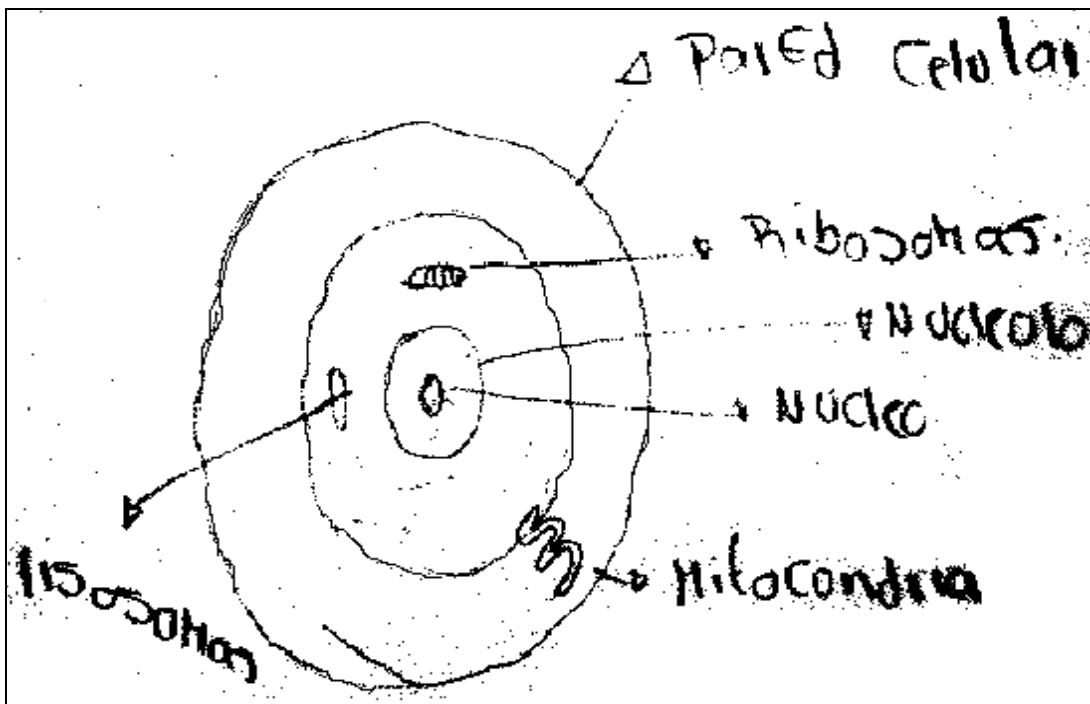 Pared Celular
Ribosomas.
Nucleolo
Nucleo
Mitocondria
lisosomas